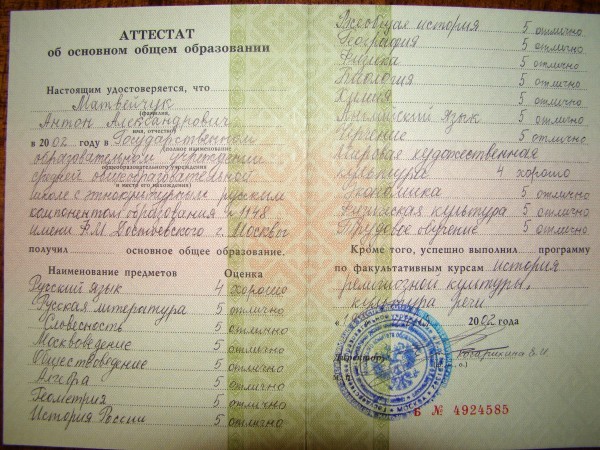 АТТЕСТАТ
об основном общем образовании
Настоящим удостоверяется, что
Матвейчук
(фамилия,
Антон Александрович
имя, отчество)
в 2002 году в Государственном
(полное наименование
образовательном учреждении
общеобразовательного учреждения
средней общеобразовательной
и места его нахождения)
школе с этнокультурным русским
компонентом образования №1148
имени Ф.М. Достоевского г. Москвы
получил основное общее образование.
Наименование предметов Оценка
Русский язык 4 хорошо
Русская литература 5 отлично
Словесность 5 отлично
Москвоведение 5 отлично
Обществоведение 5 отлично
Алгебра 5 отлично
Геометрия 5 отлично
История России 5 отлично
Всеобщая история 5 отлично
География 5 отлично
Физика 5 отлично
Биология 5 отлично
Химия 5 отлично
Английский язык 5 отлично
Черчение 5 отлично
Мировая художественная
культура 4 хорошо
Экономика 5 отлично
Физическая культура 5 отлично
Трудовое обучение 5 отлично
Кроме того, успешно выполнил программу
по факультативным курсам история
религиозной культуры,
культура речи
2002 года
Директор
Б № 4924585